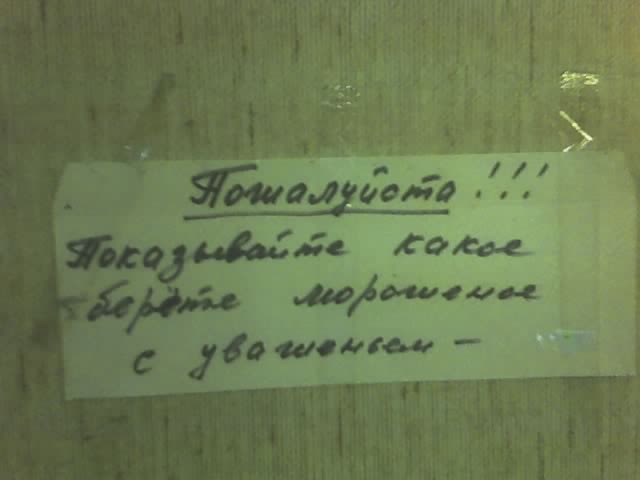 Пожалуйста!!!
Показывайте какое
берёте мороженое
с уваженьем –